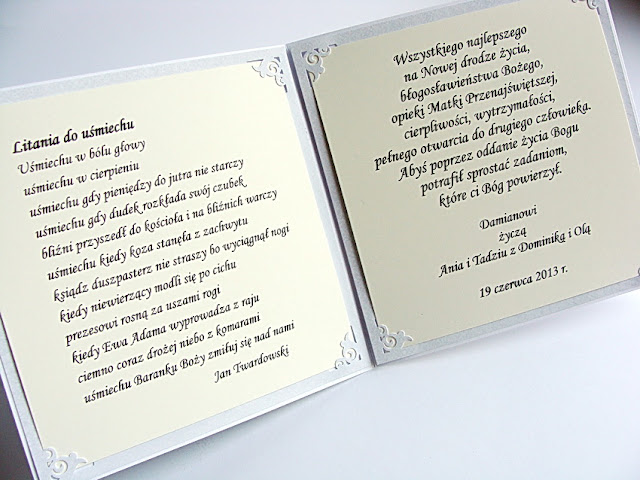 Litania do uśmiechu
Uśmiechu w bólu głowy
uśmiechu w cierpieniu
uśmiechu gdy pieniędzy do jutra nie starczy
uśmiechu gdy dudek rozkłada swój czubek
bliźni przyszedł do kościoła i na bliźnich warczy
uśmiechu kiedy koza stanęła z zachwytu
ksiądz duszpasterz nie straszy bo wyciągnął nogi
kiedy niewierzący modli się po cichu
prezesowi rosną za uszami rogi
kiedy Ewa Adama wyprowadza z raju
ciemno coraz drożej niebo z komarami
uśmiechu Baranku Boży zmiłuj się nad nami
Jan Twardowski
Wszystkiego najlepszego
na Nowej drodze życia,
błogosławieństwa Bożego,
opieki Matki Przenajświętszej,
cierpliwości, wytrzymałości,
pełnego otwarcia do drugiego człowieka.
Abyś poprzez oddanie życia Bogu
potrafił sprostać zadaniom,
które ci Bóg powierzył.
Damianowi
życzą
Ania i Tadziu z Dominiką i Olą
19 czerwca 2013 r.